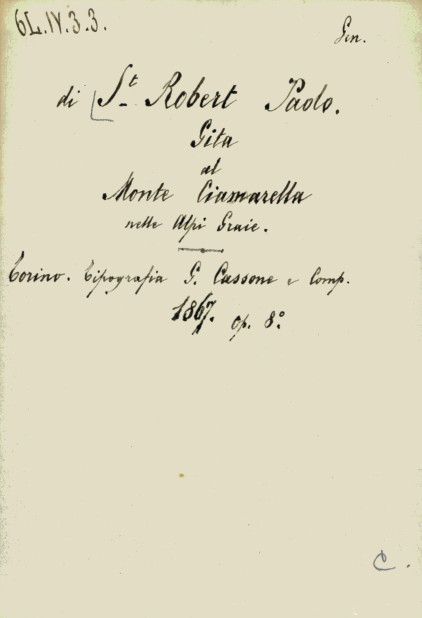 6L.IV.3.3.
Gen.
di St Robert Paolo.
Gita
al
Monte Ciamarella
nelle Alpi Graie.
Torino. Tipografia G. Cassone e Comp.
1867. op. 8°.
C.